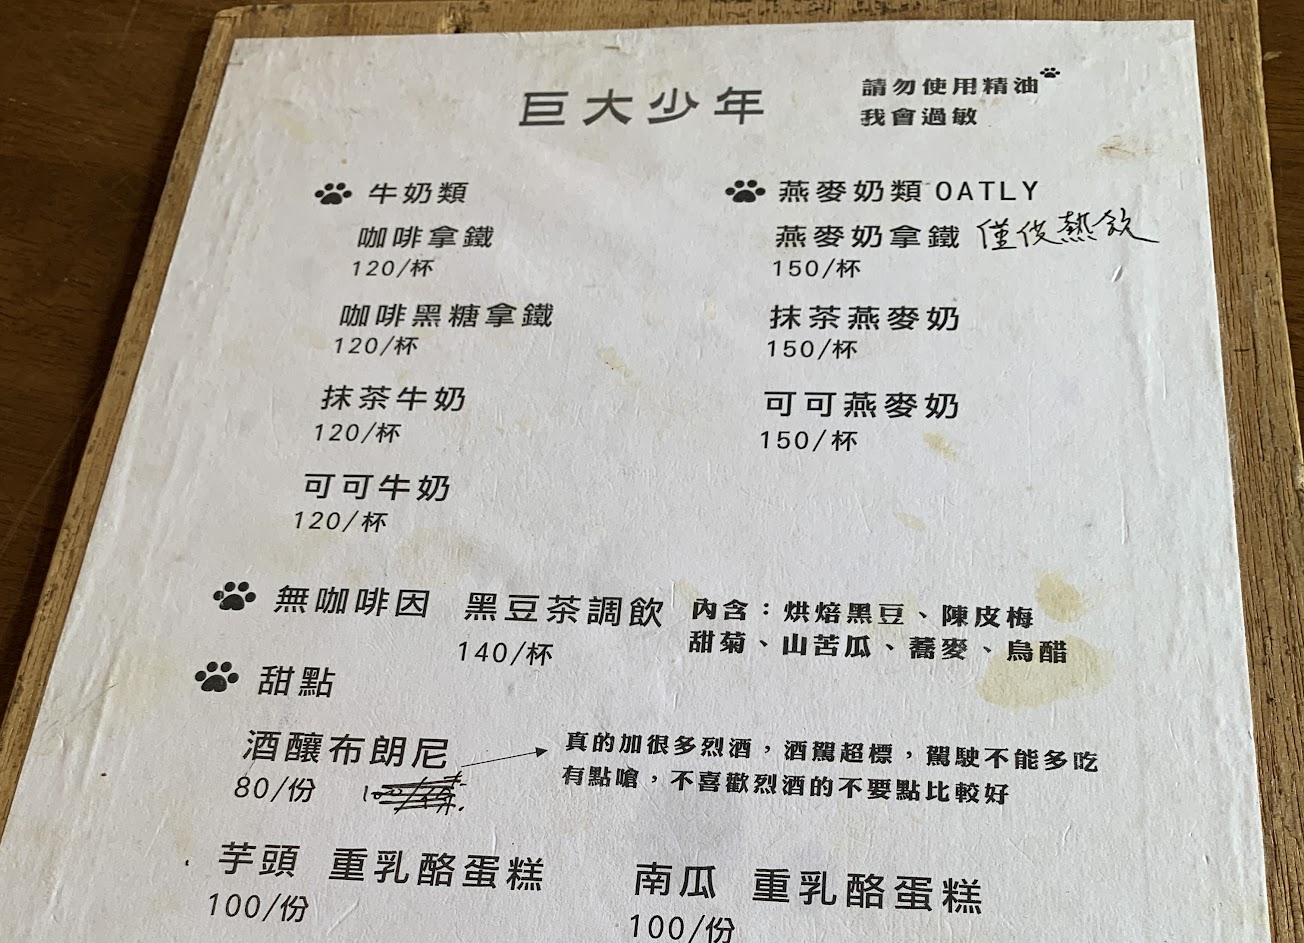 巨大少年
請勿使用精油
我會過敏
牛奶類
咖啡拿鐵
120/杯
咖啡黑糖拿鐵
120/杯
抹茶牛奶
120/杯
可可牛奶
120/杯
燕麥奶類 OATLY
燕麥奶拿鐵 僅供熱飲
150/杯
抹茶燕麥奶
150/杯
可可燕麥奶
150/杯
無咖啡因 黑豆茶調飲
140/杯
內含：烘焙黑豆、陳皮梅
甜菊、山苦瓜、蕎麥、烏醋
甜點
酒釀布朗尼
80/份
真的加很多烈酒，酒駕超標，駕駛不能多吃
有點嗆，不喜歡烈酒的不要點比較好
芋頭 重乳酪蛋糕
100/份
南瓜 重乳酪蛋糕
100/份